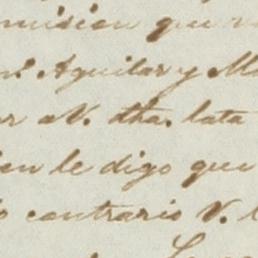 mision que
n.^s Aguilar y Ma
ar a V. dha. lata
en le digo que
o contrario V. l